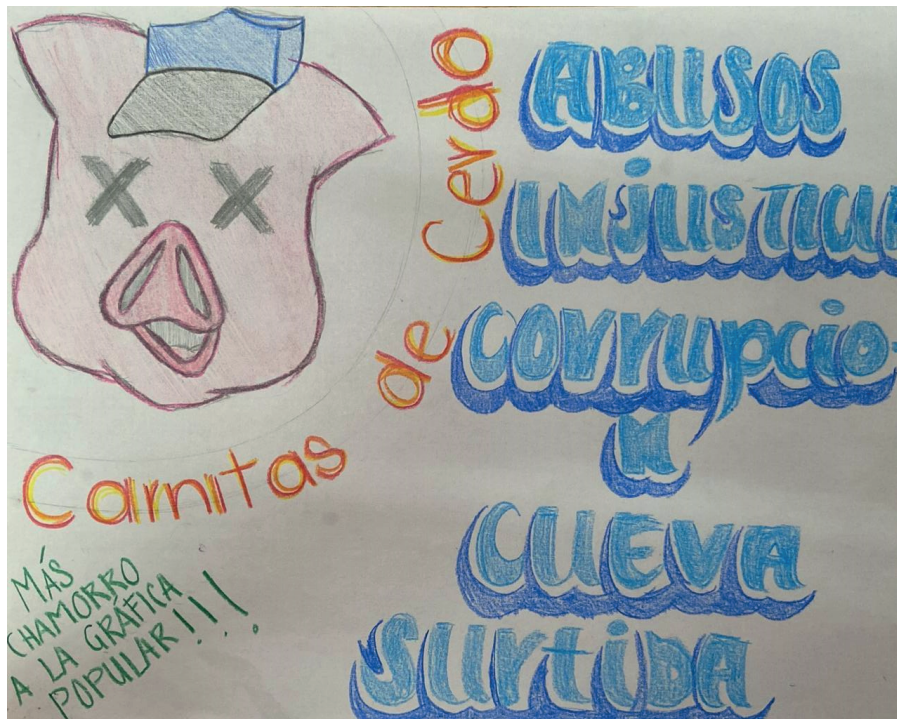 Carnitas de Cerdo
ABUSOS
INJUSTICI
COrrupcio
N
CUEVA
SurtiDA
MÁS
CHAMORRO
A LA GRÁFICA
POPULAR!!!